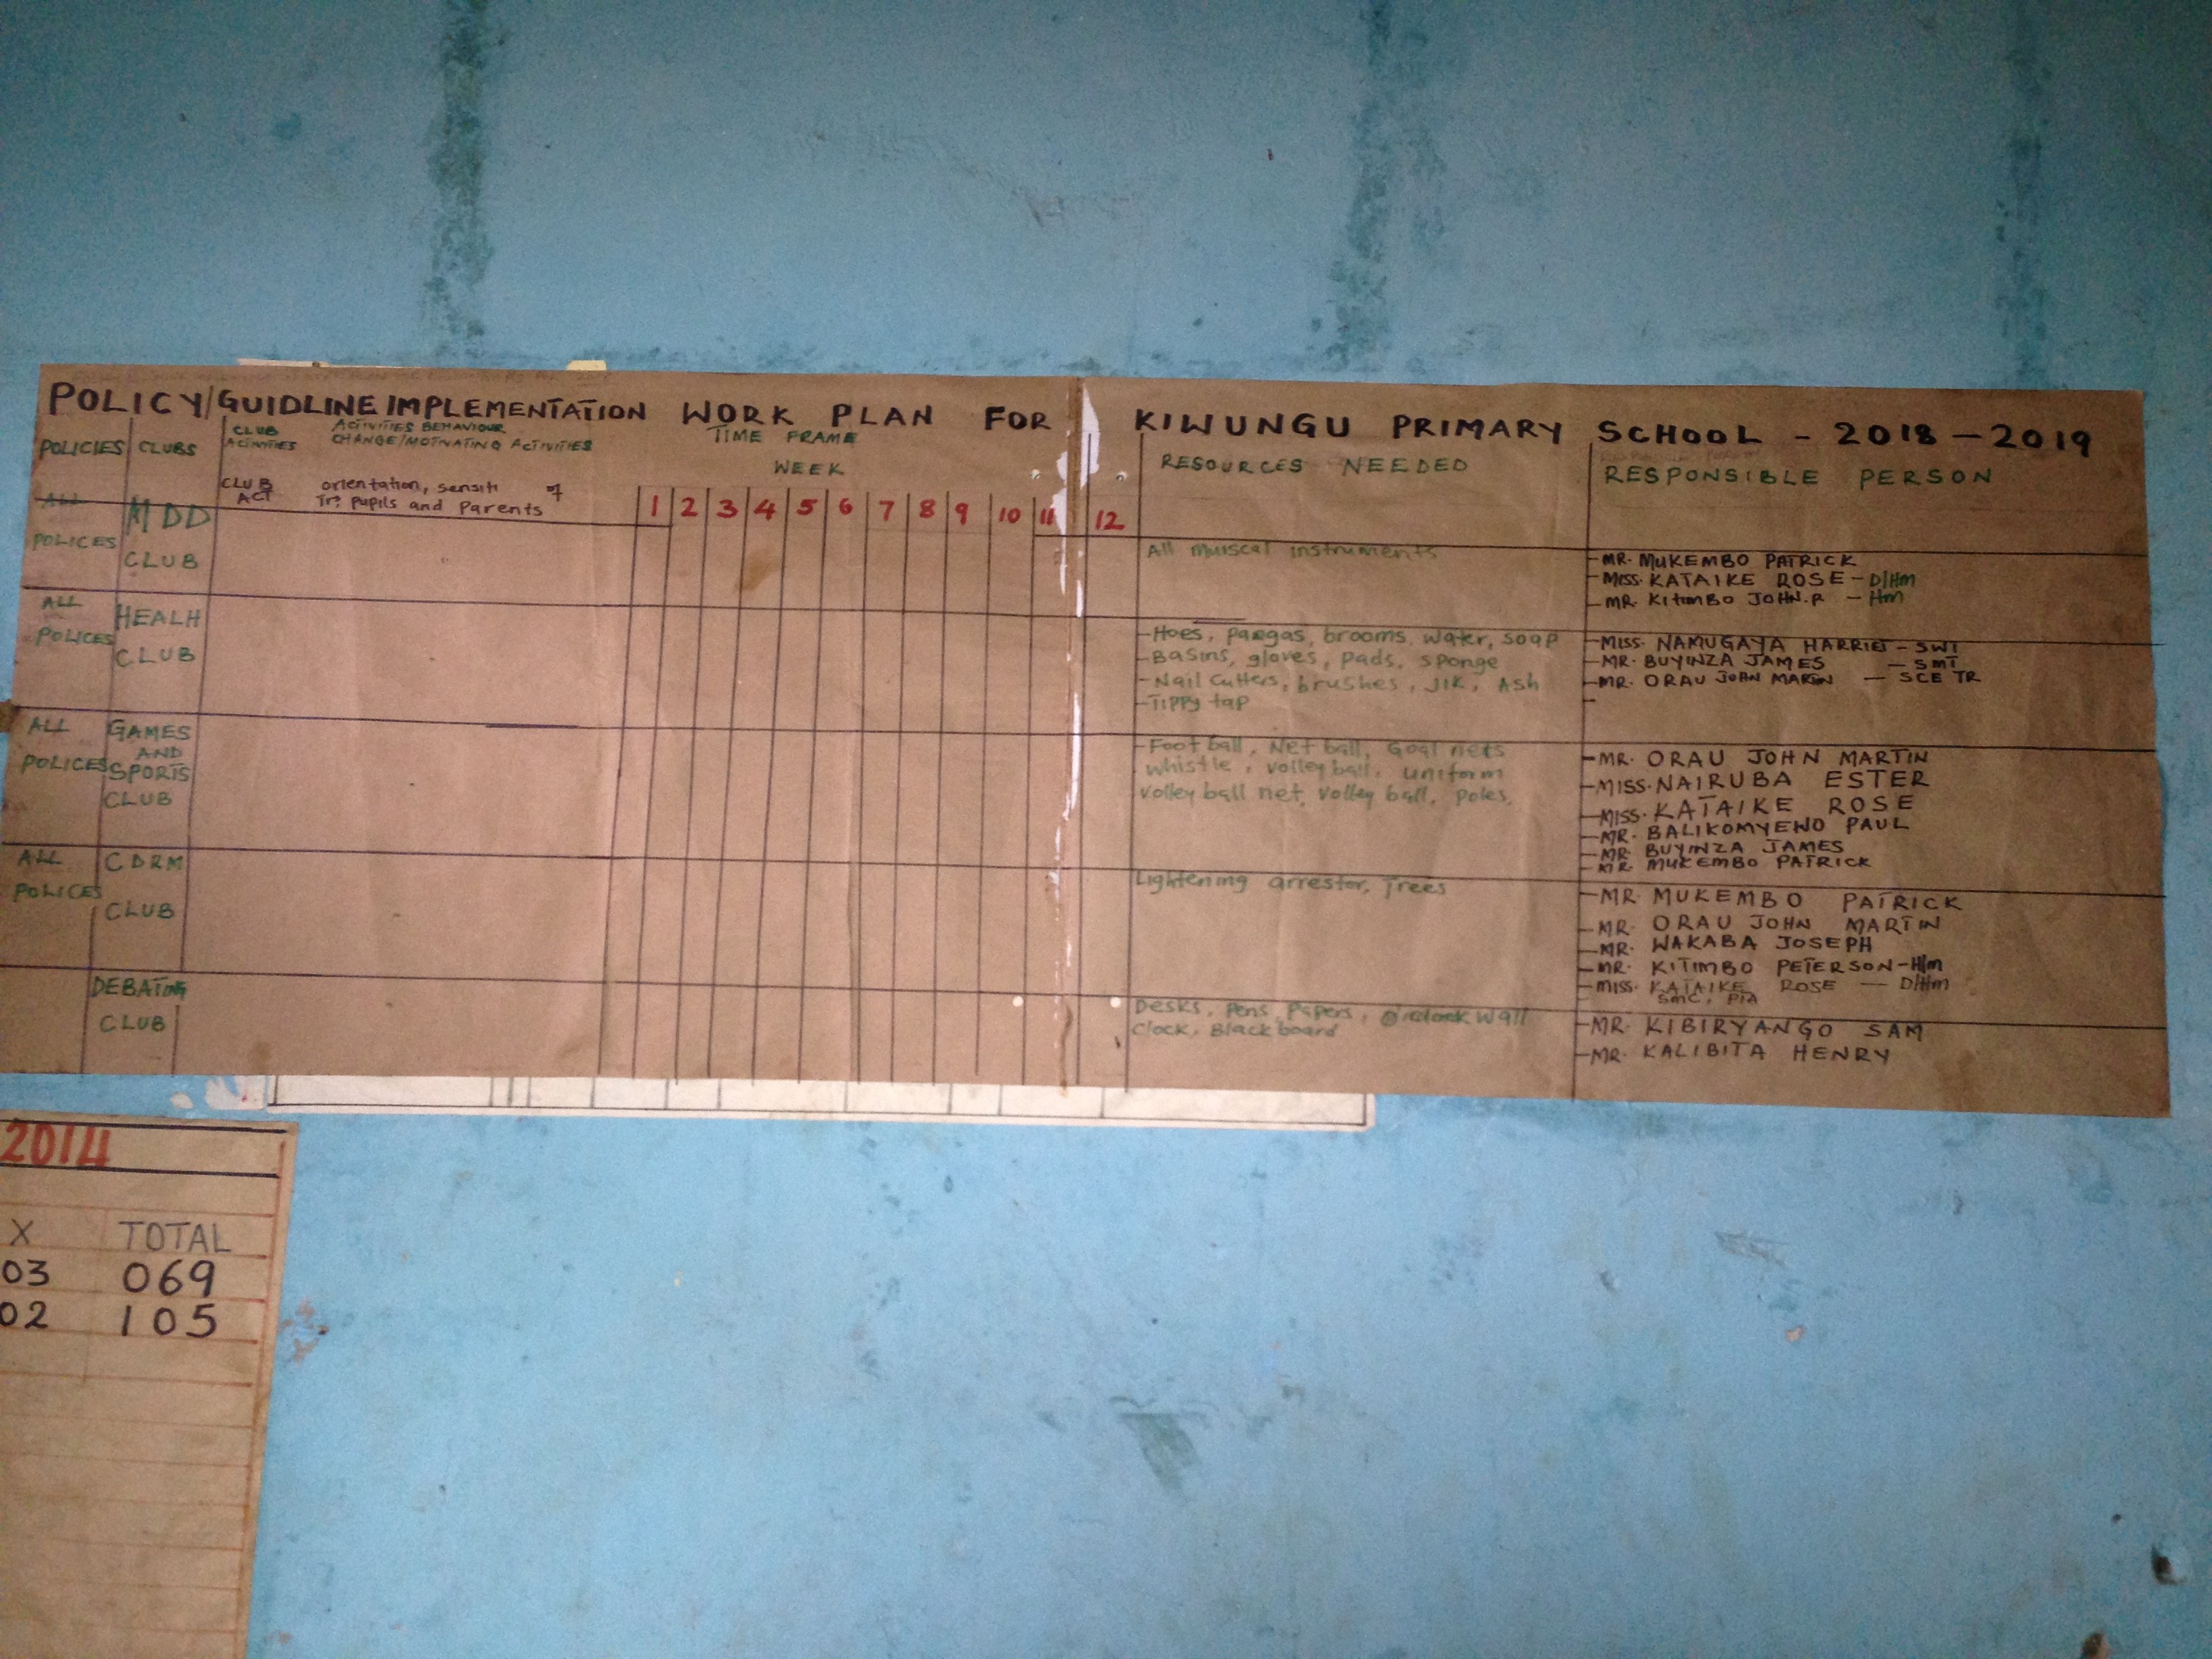 POLICY/GUIDLINE IMPLEMENTATION WORK PLAN FOR KIWUNGU PRIMARY SCHOOL - 2018 - 2019
POLICIES
CLUBS
CLUB
ACTIVITIES
ACTIVITIES BEHAVIOUR
CHANGE/MOTIVATING ACTIVITIES
TIME FRAME
WEEK
RESOURCES NEEDED
RESPONSIBLE PERSON
CLUB
ACT
orientation, sensiti of
Trs pupils and Parents
1 2 3 4 5 6 7 8 9 10 11 12
ALL
POLICES
MDD
CLUB
All muiscal instruments
- MR. MUKEMBO PATRICK
- MISS. KATAIKE ROSE - D/Hm
- MR. KitimBO JOHN.P - Hm
ALL
POLICES
HEALH
CLUB
- Hoes, pangas, brooms, water, soap
- Basins, gloves, pads, sponge
- Nail cutters, brushes, JIK, Ash
- Tippy tap
- MISS. NAMUGAYA HARRIET - SWT
- MR. BUYINZA JAMES - SMT
- MR. ORAU JOHN MARTIN - SCE TR
-
ALL
POLICES
GAMES
AND
SPORTS
CLUB
- Foot ball, Net ball, Goal nets
whistle, volley ball, uniform
volley ball net, volley ball, poles,
- MR. ORAU JOHN MARTIN
- MISS. NAIRUBA ESTER
- MISS. KATAIKE ROSE
- MR. BALIKOMYEWO PAUL
- MR. BUYINZA JAMES
- MR. MUKEMBO PATRICK
ALL
POLICES
CDRM
CLUB
Lightening arrestor, Trees
- MR. MUKEMBO PATRICK
- MR. ORAU JOHN MARTIN
- MR. WAKABA JOSEPH
- MR. KITIMBO PETERSON - H/m
- MISS. KATAIKE ROSE - D/Hm
SMC, PTA
DEBATING
CLUB
Desks, Pens, Papers, wall
clock, Black board
- MR. KIBIRYANGO SAM
- MR. KALIBITA HENRY
2014
X TOTAL
03 069
02 105